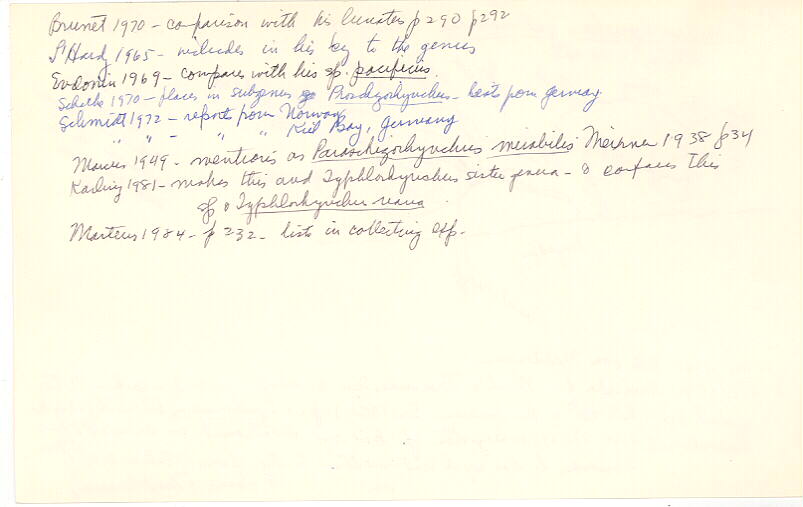 Brunet 1970 - comparison with his lunatus p 290 p 292
L'Hardy 1965 - includes in his key to the genus
Evdonin 1969 - compares with his sp. pacificus.
Schilke 1970 - places in subgenus Proschizorhynchus - lists from Germany
Schmidt 1972 - reports from Norway
" " - " " Kiel Bay, Germany
Marcus 1949 - mentions as Paraschizorhynchus mirabilis Meixner 1938 p 34
Karling 1981 - makes this and Typhlorhynchus sister genera - & compares this
sp & Typhlorhynchus nanus
Martens 1984 - p 232 - lists in collecting